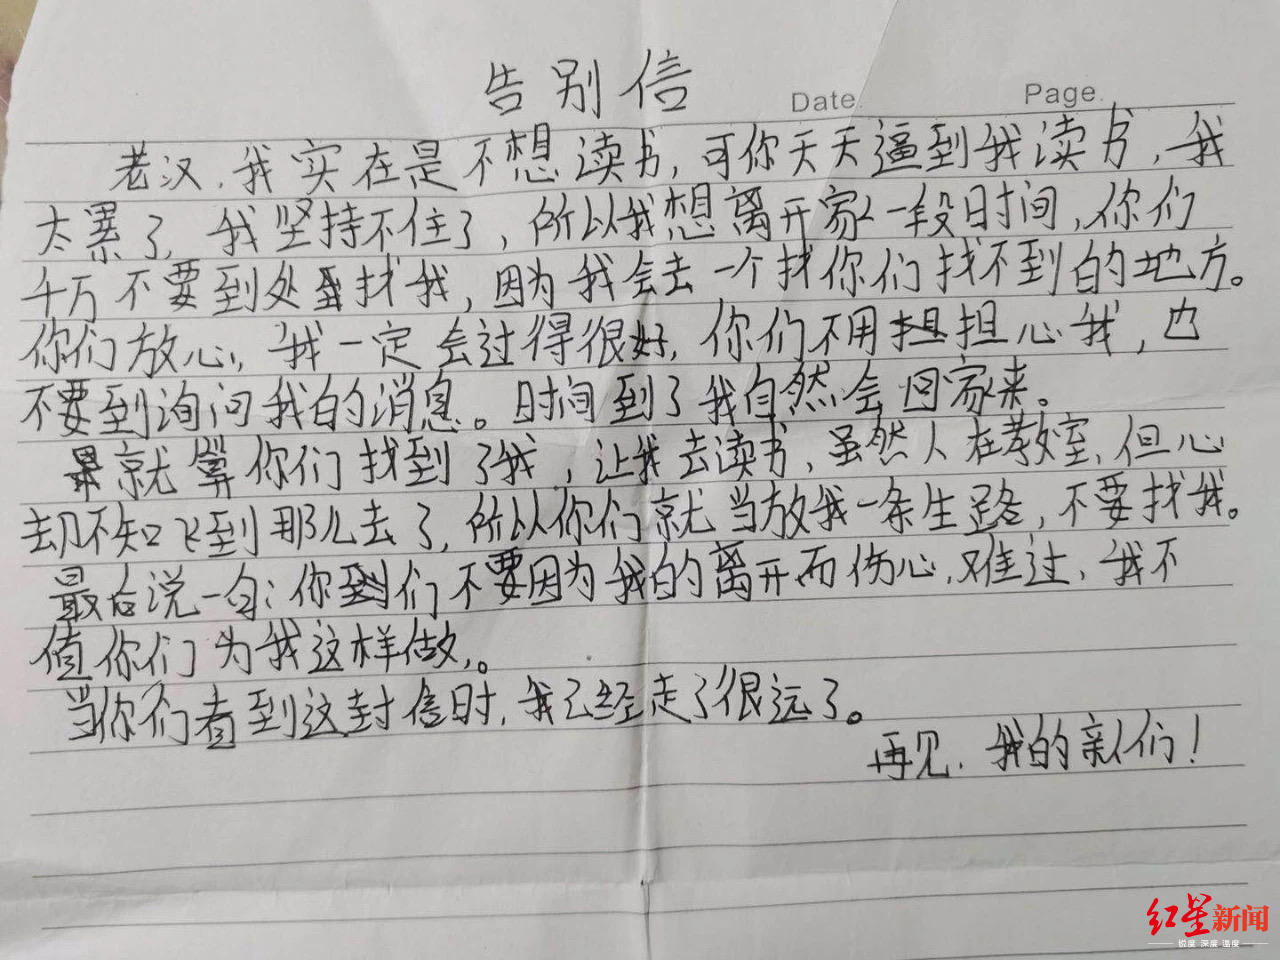 告别信
Date. Page.
老汉,我实在是不想读书,可你天天逼到我读书,我
太累了,我坚持不住了,所以我想离开家一段时间,你们
千万不要到处找我,因为我会去一个找你们找不到的地方。
你们放心,我一定会过得很好,你们不用担担心我,也
不要到询问我的消息。时间到了我自然会回家来。
就算你们找到了我,让我去读书,虽然人在教室,但心
却不知飞到那么去了,所以你们就当放我一条生路,不要找我。
最后说一句:你们不要因为我的离开而伤心,难过,我不
值你们为我这样做,。
当你们看到这封信时,我已经走了很远了。
再见,我的亲人们!
红星新闻
锐度 深度 温度